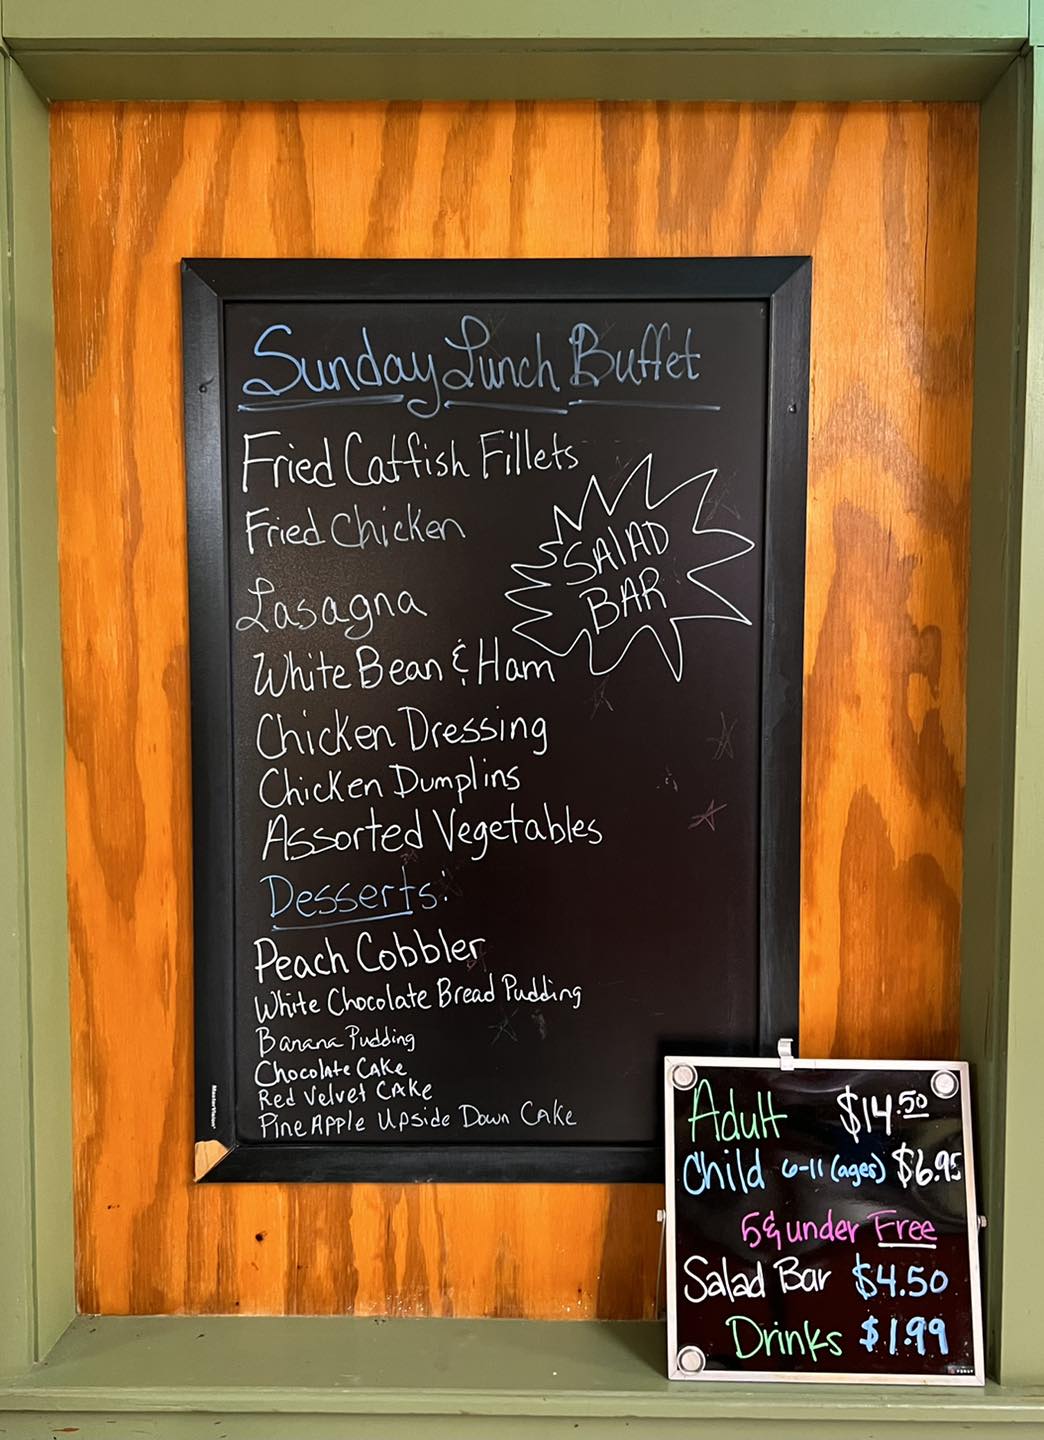 Sunday Lunch Buffet
Fried Catfish Fillets
Fried Chicken
SAlAD
BAR
Lasagna
White Bean & Ham
Chicken Dressing
Chicken Dumplins
Assorted Vegetables
Desserts:
Peach Cobbler
White Chocolate Bread Pudding
Banana Pudding
Chocolate Cake
Red Velvet Cake
Pine Apple Upside Down Cake
MasterVision
Adult $14.50
Child 6-11 (ages) $6.95
5 & under Free
Salad Bar $4.50
Drinks $1.99